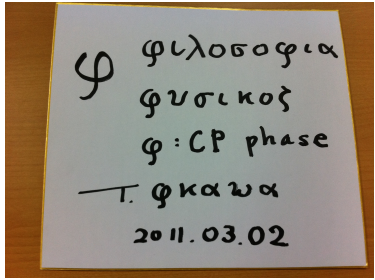 φ
φιλοσοφια
φυσικοζ
φ : CP phase
T. φκαωα
2011.03.02